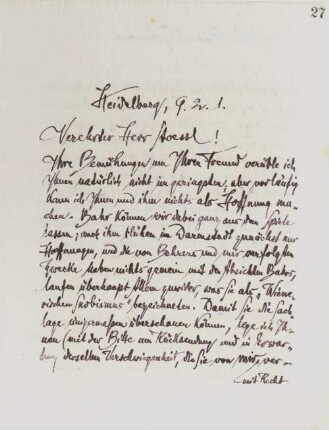 27
Heidelberg, 9. 2. 1.
Verehrter Herr Stoessl!
Ihre Bemühungen um Ihren Freund verüble ich
Ihnen natürlich nicht im geringsten, aber vorläufig
kann ich Ihnen und ihm nichts als Hoffnung ma-
chen. Bahr können wir dabei ganz aus dem Spiele
lassen; auch ihm blühen in Darmstadt zunächst nur
Hoffnungen, und die von Behrens und mir verfolgten
Zwecke haben nichts gemein mit den Absichten Bahrs,
laufen überhaupt Allem zuwider, was Sie als „Wiene-
rischen Snobismus“ bezeichneten. Damit Sie die Sach-
lage einigermaßen überschauen können, lege ich Ih-
nen (mit der Bitte um Rücksendung und in Erwar-
tung derselben Verschwiegenheit, die Sie von mir, ver-
mit Recht